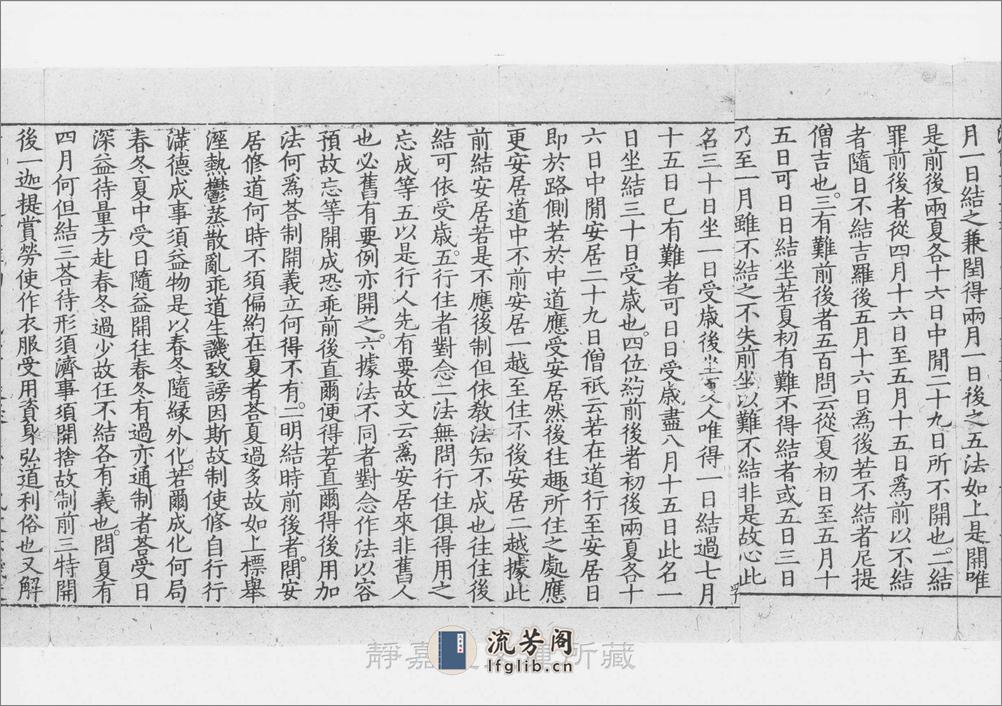 月一日結之兼閏得兩月一日後之五法如上是開唯
是前後兩夏各十六日中閒二十九日所不開也二結
罪前後者從四月十六日至五月十五日爲前以不結
者隨日不結吉羅後五月十六日爲後若不結者尼提
僧吉也三有難前後者五百問云從夏初日至五月十
五日可日日結坐若夏初有難不得結者或五日三日
乃至一月雖不結之不失前坐以難不結非是故心此
名三十日坐一日受歲後坐人唯得一日結過七月
十五日巳有難者可日日受歲盡八月十五日此名一
日坐結三十日受歲也四位約前後者初後兩夏各十
六日中閒安居二十九日僧祇云若在道行至安居日
即於路側若於中道應受安居然後往趣所住之處應
更安居道中不前安居一越至住不後安居二越據此
前結安居若是不應後制但依教法知不成也往住後
結可依受歲五行住者對念二法無問行住俱得用之
忘成等五以是行人先有要故文云爲安居來非舊人
也必舊有要例亦開之六據法不同者對念作法以容
預故忘等開成恐乖前後直爾便得若直爾得後用加
法何爲荅制開義立何得不有二明結時前後者問安
居修道何時不須偏約在夏者荅夏過多故如上標舉
溼熱鬱蒸散亂乖道生譏致謗因斯故制使修自行行
滿德成事須益物是以春冬隨緣外化若爾成化何局
春冬夏中受日隨益開往春冬有過亦通制者荅受日
深益待量方赴春冬過少故任不結各有義也問夏有
四月何但結三荅待形須濟事須開捨故制前三特開
後一迦提賞勞使作衣服受用資身弘道利俗也又解
靜嘉 所藏
流芳阁
lfglib.cn